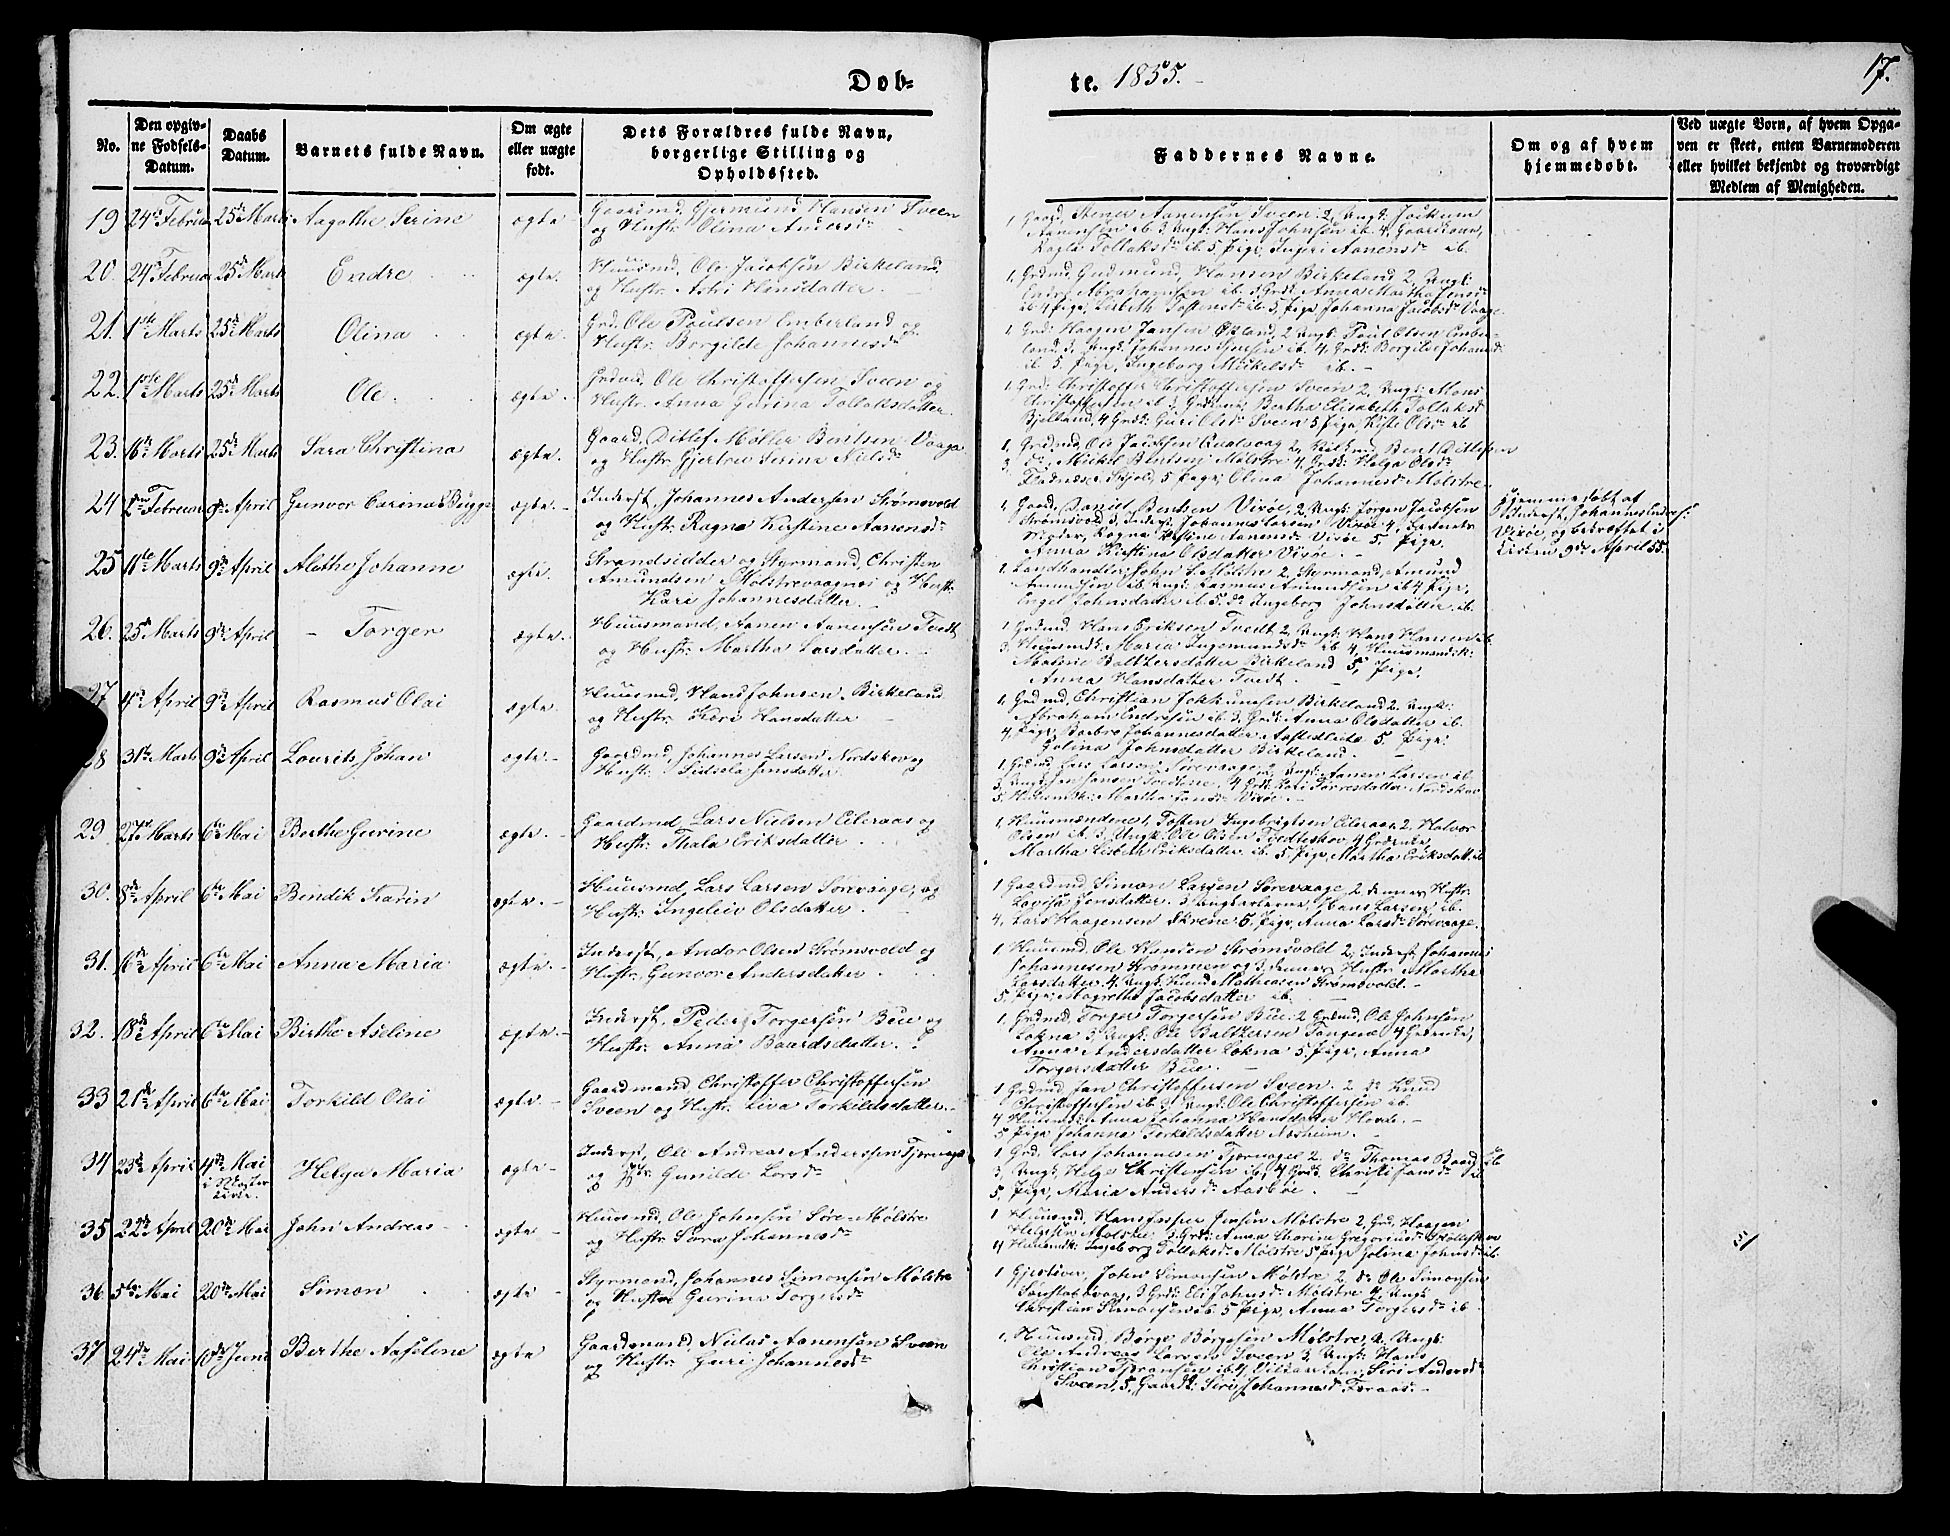 Dob-
te. 1855.
17.
No.
Den opgiv-
ne Fødsels-
Datum.
Daabs
Datum.
Barnets fulde Navn.
Om ægte
eller uægte
født.
Dets Forældres fulde Navn,
borgerlige Stilling og
Opholdssted.
Faddernes Navne.
Om og af hvem
hjemmedøbt.
Ved uægte Børn, af hvem Opga-
ven er skeet, enten Barnemoderen
eller hvilket bekjendt og troværdigt
Medlem af Menigheden.
19 24de Februar 25de Marts Aagothe Serine ægte
Gaardmd. Gjermund Hansen Sveen
og Hustr: Olina Andersdr
1, Gaard. Stener Aanensøn Sveen 2, Ungk: Jockum
Aanensøn ib. 3 Ungk: Hans Johnsøn ib. 4, Gaardkone,
Tollaksdr ib. 5, Pige, Ingeri Aanensdr ib.
20. 24de Februar 25de Marts Endre ægte.
Huusmd, Ole Jacobsøn Birkeland
og Hustr. Astri Hansdatter.
1, Grdmd. Gudmund Hansen Birkeland 2, Ungk:
Endre Abrahamsøn ib. 3, Grdk: Anna Martha Jensdr
ib 4 Pige, Lisbeth Tostensdr ib 5, Pige Johanna Jacobsdr Vaage
21. 1ste Marts 25de Marts Olina ægte.
Grd. Ole Poulsen Emberland og
Hustr. Borgilde Johannesdr
1, Grd: Haagen Jansen Øvland, 2 Ungk: Poul Olsen Ember-
land, 3, Ungk: Johannes ib. 4, Grdk: Borgilde Johansd:
ib 5, Pige, Ingeborg Mikelsdr ib.
22. 1ste Marts 25de Marts Ole. ægte.
Grdmd, Ole Christoffersen Sveen og
Hustr: Anna Gurina Tollaksdatter.
1, Grd: Christoffer Christoffersen Sveen 2, Ungk: Mons
Christoffersen ib 3, Grdkone: Bertha Elisabeth Tollaksd
Bjelland, 4 Grdk: Guri Olsdr Sveen 5, Pige, Olsdr ib
23. 16de Marts 25de Marts Sara Christina ægte.
Gaard, Ditlef Møller Bentsen Vaage
og Hustr. Gjertru Serina Nielsdr
1, Grdmd, Ole Jacobsen Qualvaag 2, Bent Ditlefsen
3, do, Mickel Bentsen Mølstre 4, Grdk: Helga Olsdr
Skjold, 5, Pige, Olina Johannesdr Mølstre
24 Februar 9de April Gunvor Carina Bugge ægte.
Inderst, Johannes Andersen Strømsvold
og Hustr: Ragna Kirstine Aanensdr
1, Gaard, Daniel Bentsen Visøe, 2, Ungk: Jørgen Jacobsøn
Strømsvold 3, Inderst, Johannes Larsen Visøe 4, Barnets
Moder, Ragna Kirstine Aanensdr Visøe 5, Pige,
Anna Kirstina Olsdatter Visøe.
Hjemmedøbt af
Inderst, Johannes Anders:
Visøe, og bekræftet i
Kirken 9de April 55.
25 11te Marts 9de April Alethe Johanne ægte.
Strandsidder og Styrmand, Christen
Amundsen Mølstrevaagnes og Hustr
Kari Johannesdatter.
1, Landhandler John L. Mølstre 2, Styrmand, Amund
Amundsøn ib. 3, Ungk: Rasmus Amundsøn ib 4, Pige,
Engel Johnsdatter ib. 5, do Ingeborg Johnsdatter ib.
26. 25de Marts 9de April Torger ægte.
Huusmand, Aanen Aanensøn Tvedt
og Hustr: Martha Larsdatter.
1 Grdmd. Hans Eriksen Tvedt 2, Ungk: Hans Hansen ib.
3, Huusmdk: Maria Ingemundsdr ib 4, Huusmandsk:
Malene Balthersdatter Birkeland 5, Pige,
Anna Hansdatter Tvedt.
27 4de April 9de April Rasmus Olai ægte.
Huusmd, Hans Johnsen Birkeland
og Hustr: Kari Hansdatter
1, Grdmd, Christian Jokkumsen Birkeland 2, Ungk:
Abraham Endresøn ib. 3, Grdk: Anna Olsdatter ib.
4, Pige, Barbro Johannesdatter 5, Pige:
Golina Johnsdatter Birkeland.
28 31te Marts 9de April Lourits Johan ægte.
Gaardmd, Johannes Larsen Nordskov og
Hustr: Sidsela Jensdatter
1, Grdmd, Lars Larsen Sørevaage 2, Ungk: Aanen Larsen ib.
3, Ungk: Jansen 4 Grdk: Kari Torresdatter Nordskov
5, Huusmdk: Martha Visøe.
29 27de Marts 6te Mai Berthe Gurine ægte.
Gaardmd, Lars Nielsen Eileraas og
Hustr: Thala Eriksdatter.
1, Huusmændene 1, Tosten Ingebrigtsen Eileraas 2, Halvor
Olsen ib 3, Ungk: Ole Olsen Tvedteskov 4 Grdmk,
Martha Lisbeth Eriksdatter ib. 5, Pige, Martha Eriksdatt. ib
30. 8de April 6te Mai Bendik Karin ægte.
Huusmd, Lars Larsen Sørevaage, og
Hustr: Ingeleiv Olsdatter.
1 Gaardmd, Simon Larsen Sørevaage 2, dennes Hustr.
Lovisa Jensdatter. 3, Ungkarlene, Hans Larsen ib.
4, Lars Haagensen 5, Pige, Anna Larsdr Sørevaage.
31. April 6te Mai Anna Maria ægte.
Inderst, Andor Olsen Strømsvold og
Hustr: Gunvor Andersdatter.
1 Huusmd. Ole Hansen Strømsvold 2, Inderst Johannes
Johannesen Strømmen og 3, dennes Hustr. Martha
Larsdatter 4, Ungk: Knud Mathiasen Strømsvold.
5, Pige: Magrethe Jacobsdatter ib.
32. 18de April 6te Mai Birthe Aseline ægte.
Inderst, Peder Torgersøn Bue og
Hustr: Anna Baardsdatter.
1, Grdmd, Torger Torgersøn Bue. 2 Grdmd, Ole Johnsøn
Løkna 3, Ungk: Ole Balthersen 4 Grdmdk,
Anna Andersdatter Løkna 5, Pige, Anna
Torgersdatter Bue.
33 21de April 6te Mai Torkild Olai ægte.
Gaardmand Christoffer Christoffersøn
Sveen og Hustr: Liva Torkildsdatter.
1 Grdmd Jan Christoffersen Sveen. 2 do Knud
Christoffersøn ib. 3, Ungk: Ole Christoffersøn ib.
4 Huusmdk: Anna Johanna Hansdatter Hovde.
5, Pige Johanna Torkildsdatter Aasheim.
34 23de April 4de Mai
i Moster
Kirke.
Helga Maria ægte.
Inderst, Ole Andreas Anderssøn Tjernagel
og Hustr: Gunilde Larsdr
1 Grd. Lars Johannesen Tjernagel 2 do Thomas Baard ib
3, Ungk: Helge Christensøn ib. 4 Grdk: Christi Jansdr ib
5, Pige, Maria Andersdr Aasbøe.
35 22de April 20de Mai John Andreas ægte.
Huusmd, Ole Johnsøn Søre-Mølstre
og Hustr Sara Johannesdr
1 Huusmd, Hans Jesper Jensøn Mølstre 2, Grd, Haagen
Helgesøn Mølstre. 3 Grdk: Anna Thorine Gregoriusdr
4 Huusmdk: Ingeborg Tollaksdr Mølstre 5 Pige Golina Johnsdr ib.
36. 5te Mai 20de Mai Simon ægte
Styrmand, Johannes Simonsøn Mølstre
og Hustr Gurina Torgersdr
1 Gjestgiver, John Simonsøn Mølstre 2, do Ole Simonsøn
3 Grdk: Eli Johnsdr Mølstre 4, Ungk:
Christian ib. 5 Pige, Anna Torgersdr ib.
37 24de Mai Juni Berthe Aaseline ægte
Gaardmand, Niclas Aanensøn Sveen
og Hustr: Guri Johannesdr
1, Huusmd, Børge Børgesøn Mølstre, 2, Ungk:
Ole Andreas Larsen Sveen 3, Ungk: Hans
Christian ib 4, Siri Andersdr
Sveen, 5, Gaardk: Siri Johannesdr